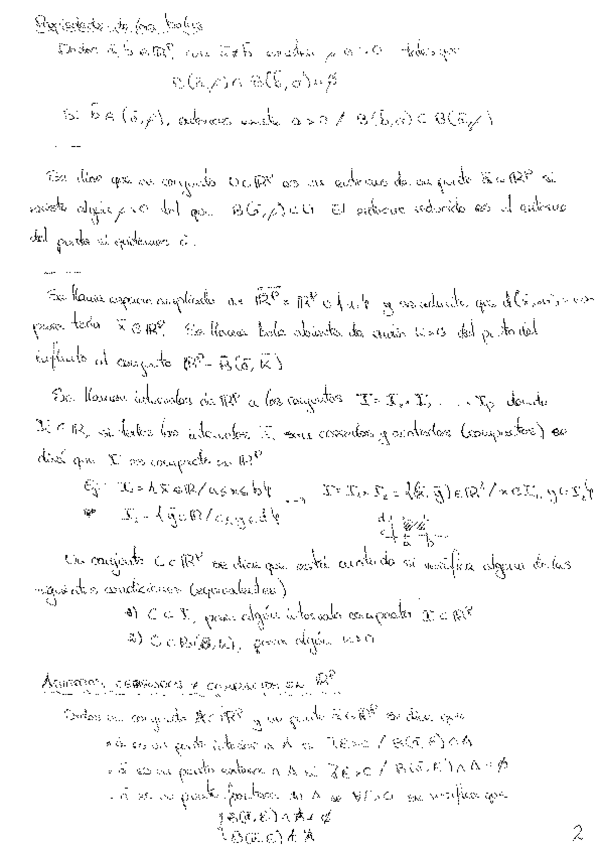 Propiedades de las bolas
Dados ā, b̄ ∈ ℝᴾ, con ā ≠ b̄ existen ρ, σ > 0 tales que
B(ā,ρ) ∩ B(b̄,σ) = ∅
Si b̄ ∈ B(ā,ρ), entonces existe σ > 0 / B(b̄,σ) ⊂ B(ā,ρ)
Se dice que un conjunto U ⊂ ℝᴾ es un entorno de un punto ā ∈ ℝᴾ si
existe algún ρ > 0 tal que B(ā,ρ) ⊂ U. El entorno reducido es el entorno
del punto si quitamos ā.
Se llama espacio ampliado a ℝᴾ = ℝᴾ ∪ {∞} y se admite que d(x̄,∞) = +∞
para todo x̄ ∈ ℝᴾ. Se llama bola abierta de radio K>0 del punto del
infinito al conjunto ℝᴾ - B̄(ō, K)
Se llaman intervalos de ℝᴾ a los conjuntos I = I₁ × I₂ ... Iₚ donde
Iᵢ ⊂ ℝ, si todos los intervalos Iᵢ son cerrados y acotados (compactos) se
dirá que I es compacto en ℝᴾ
Ej: I₁ = {x̄ ∈ ℝ / a ≤ x ≤ b} I = I₁ × I₂ = {(x̄, ȳ) ∈ ℝ² / x ∈ I₁, y ∈ I₂}
I₂ = {ȳ ∈ ℝ / c ≤ y ≤ d}
d
c
a b
Un conjunto C ⊂ ℝᴾ se dice que está acotado si verifica alguna de las
siguientes condiciones (equivalentes)
1) C ⊂ I, para algún intervalo compacto I ⊂ ℝᴾ
2) C ⊂ B(ō, K), para algún K > 0
ABIERTOS, CERRADOS Y COMPACTOS EN ℝᴾ
Dados un conjunto A ⊂ ℝᴾ y un punto ā ∈ ℝᴾ se dice que
· ā es un punto interior a A si ∃ε>0 / B(ā,ε) ⊂ A
· ā es un punto exterior a A si ∃ε>0 / B(ā,ε) ∩ A = ∅
· ā es un punto frontera de A si ∀ε>0 se verifica que
B(ā,ε) ∩ A ≠ ∅
B(ā,ε) ⊄ A
2